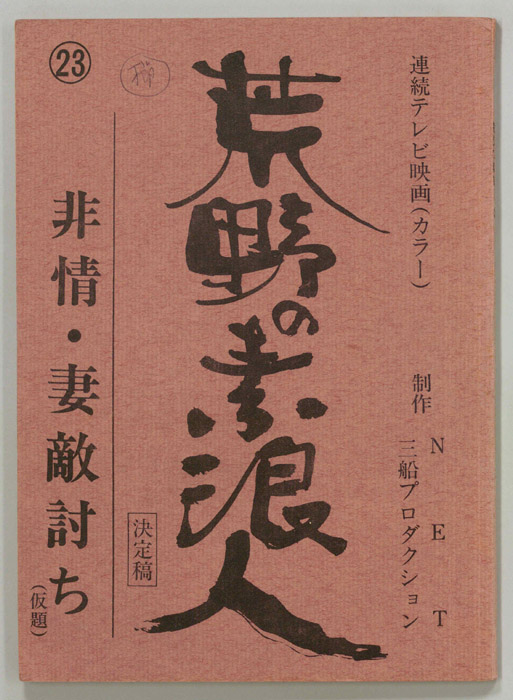 連続テレビ映画（カラー）
制作
NET
三船プロダクション
荒野の素浪人
決定稿
㉓
非情・妻敵討ち
（仮題）